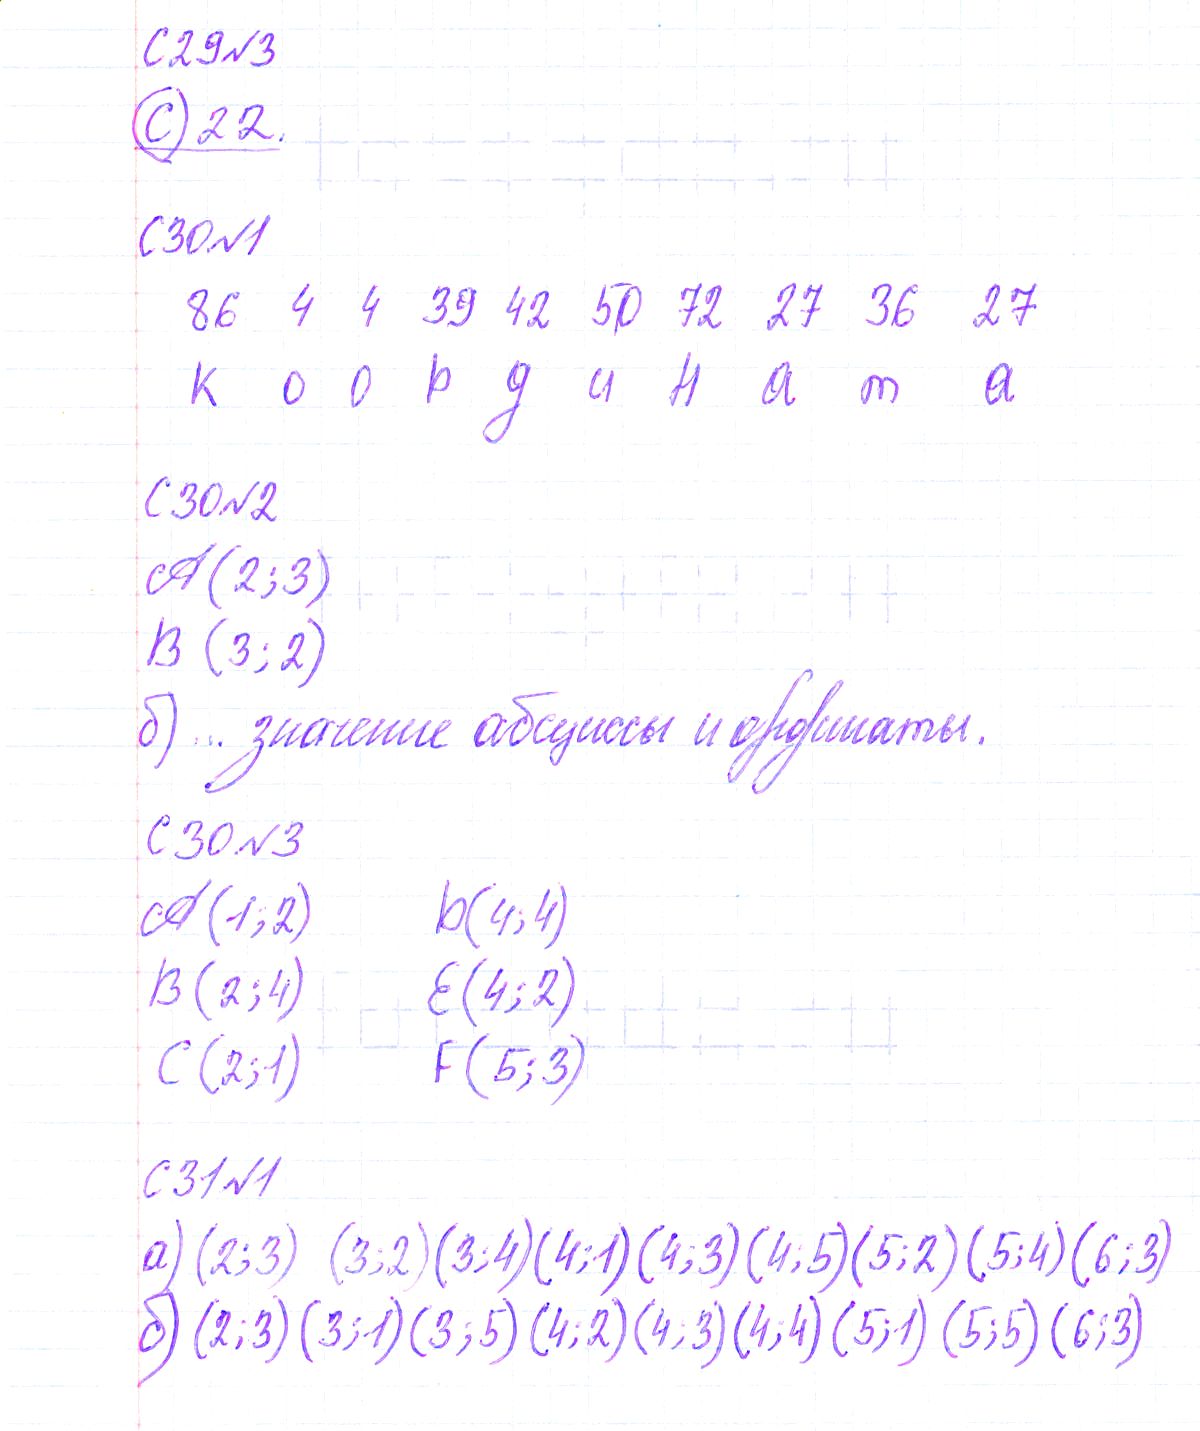 С29№3
С) 22.
С30№1
86 4 4 39 42 50 72 27 36 27
К о о р д и н а т а
С30№2
А (2;3)
В (3;2)
б) ... значение абсциссы и ординаты.
С30№3
А (1;2) D(4;4)
В (2;4) Е(4;2)
С (2;1) F(5;3)
С31№1
а) (2;3) (3;2) (3;4) (4;1) (4;3) (4;5) (5;2) (5;4) (6;3)
б) (2;3) (3;1) (3;5) (4;2) (4;3) (4;4) (5;1) (5;5) (6;3)